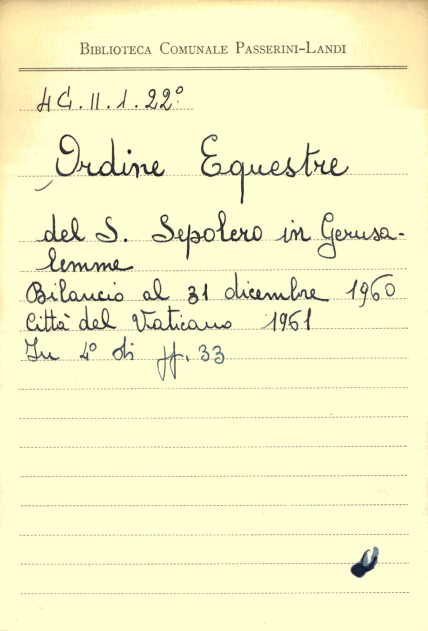 BIBLIOTECA COMUNALE PASSERINI-LANDI
4G.II.1.22°
Ordine Equestre
del S. Sepolcro in Gerusa-
lemme
Bilancio al 31 dicembre 1960
Città del Vaticano 1961
In 4° di ff. 33